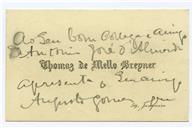 Ao seu bom Collega e amigo
Antonio José d'Almeida
Thomaz de Mello Breyner
apresenta o
Augusto Gomes